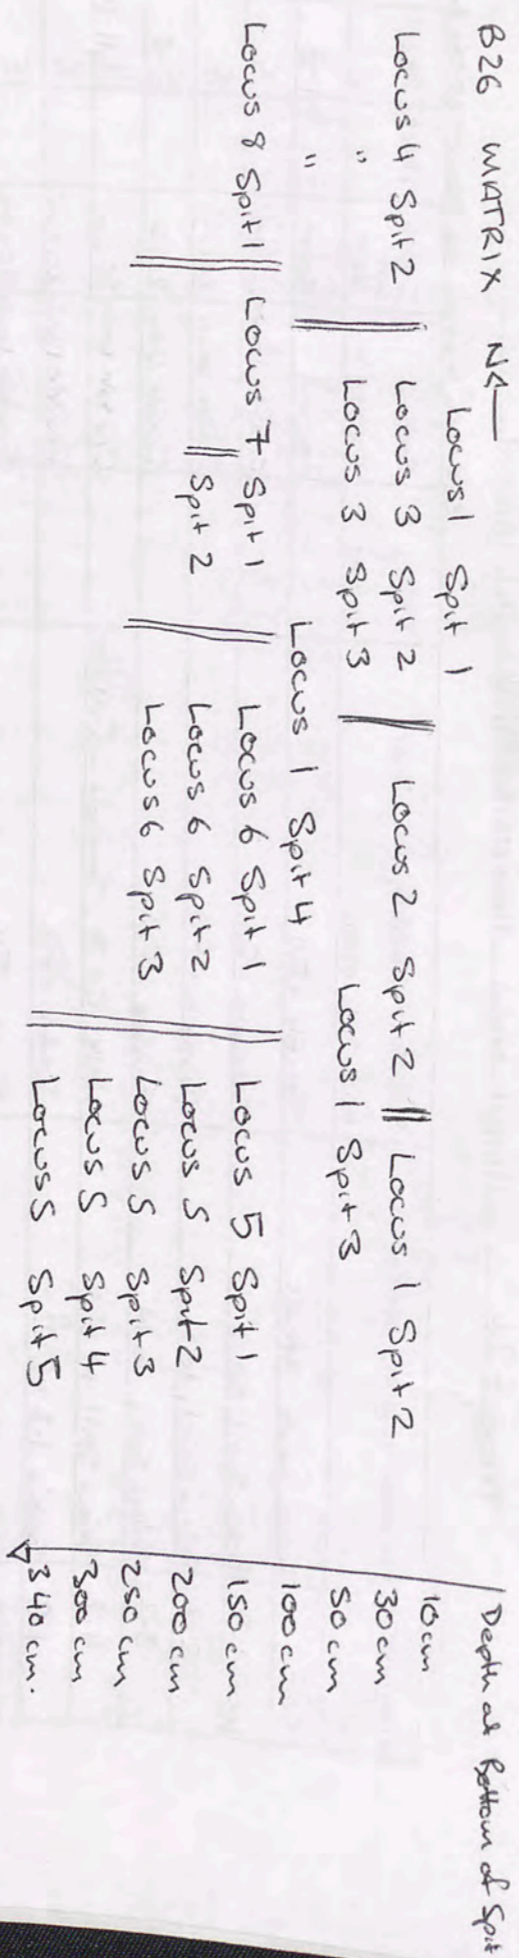 B26 MATRIX N← Depth at Bottom of Spit
Locus 1 Spit 1 10cm
Locus 4 Spit 2 || Locus 3 Spit 2 || Locus 2 Spit 2 || Locus 1 Spit 2 30cm
" Locus 3 Spit 3 Locus 1 Spit 3 50cm
" Locus 1 Spit 4 100cm
Locus 8 Spit 1 || Locus 7 Spit 1 || Locus 6 Spit 1 || Locus 5 Spit 1 150cm
|| Spit 2 Locus 6 Spit 2 Locus 5 Spit 2 200cm
Locus 6 Spit 3 Locus 5 Spit 3 250cm
Locus 5 Spit 4 300cm
Locus 5 Spit 5 340cm.